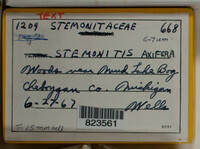 TEXT
1209 STEMONITACEAE 668
6-7 um
STEMONITIS AXIFERA
Woods near Mud Lake Bog
Cheboygan Co. Michigan
6-27-67 Wells
823561